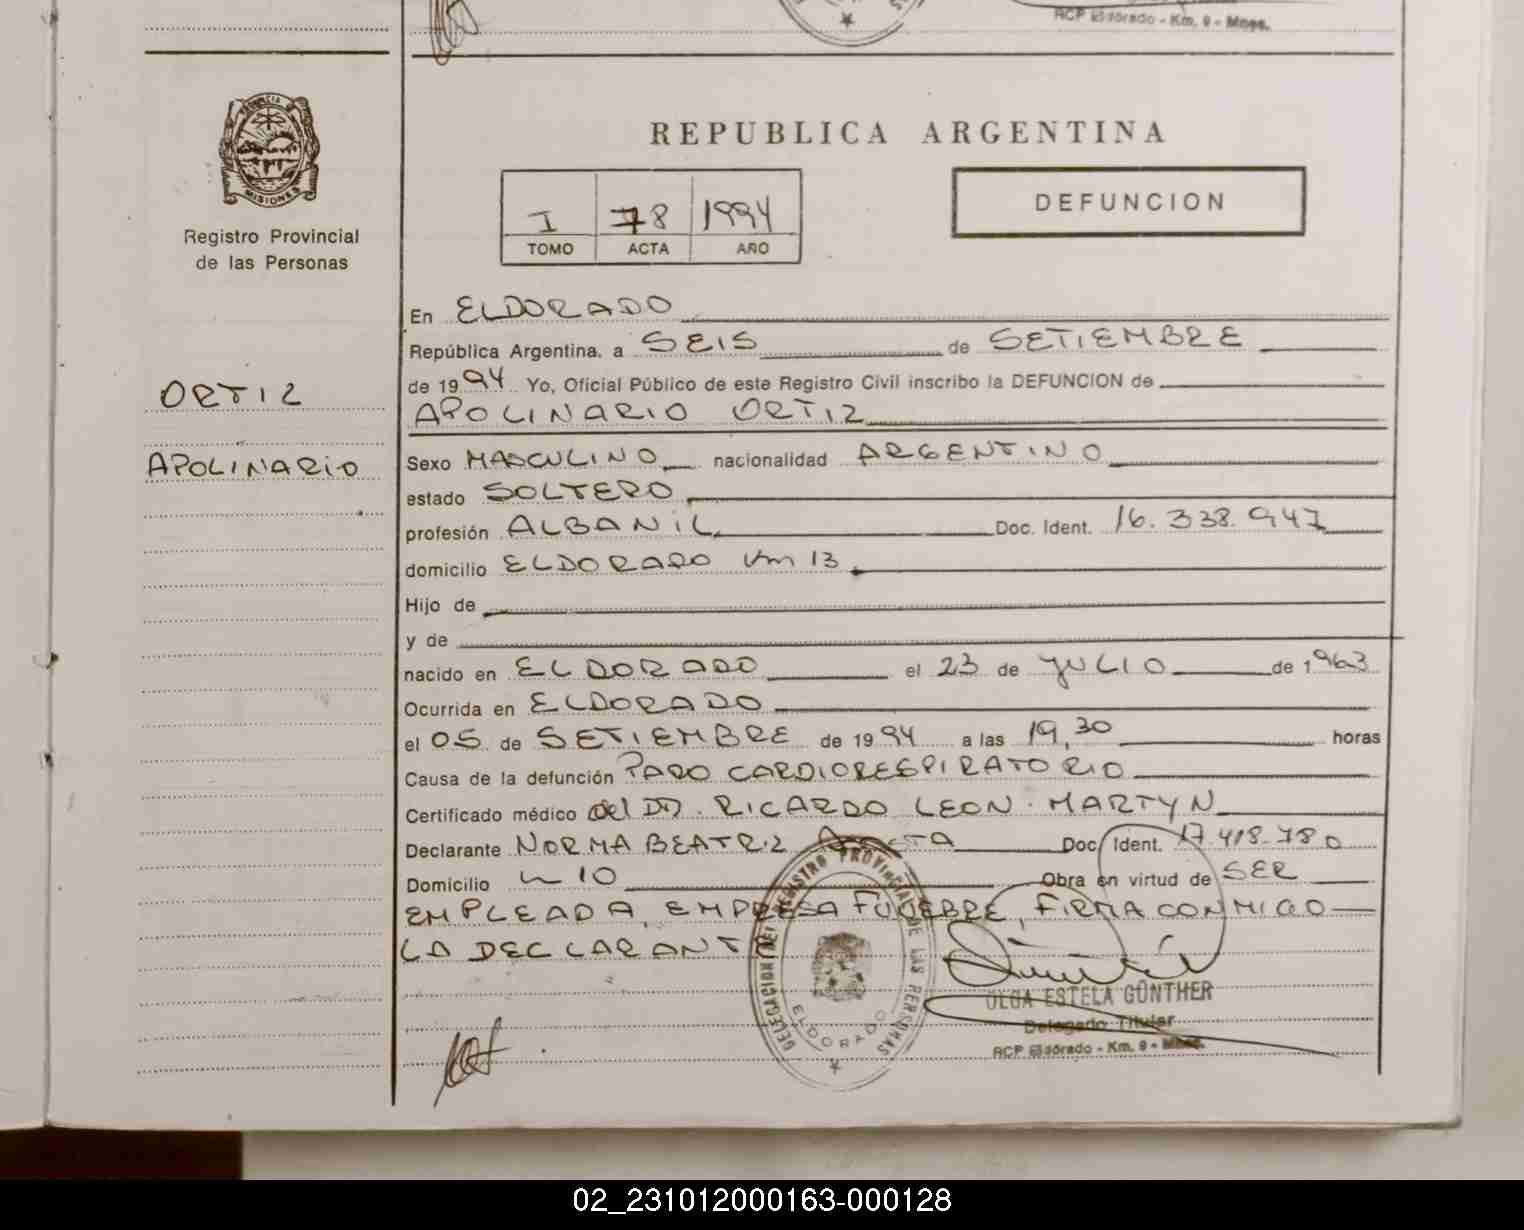 RCP Eldorado - Km. 9 - Mnes.
PROVINCIA DE
MISIONES
Registro Provincial
de las Personas
REPUBLICA ARGENTINA
I 78 1994
TOMO ACTA AÑO
DEFUNCION
ORTIZ
APOLINARIO
En ELDORADO
República Argentina, a SEIS de SETIEMBRE
de 1994 Yo, Oficial Público de este Registro Civil inscribo la DEFUNCION de
APOLINARIO ORTIZ
Sexo MASCULINO nacionalidad ARGENTINO
estado SOLTERO
profesión ALBANIL Doc. Ident. 16.338.947
domicilio ELDORADO Km 13
Hijo de
y de
nacido en ELDORADO el 23 de JULIO de 1963
Ocurrida en ELDORADO
el 05 de SETIEMBRE de 1994 a las 19,30 horas
Causa de la defunción PARO CARDIORESPIRATORIO
Certificado médico del DR. RICARDO LEON MARTYN
Declarante NORMA BEATRIZ Doc. Ident. 17.418.780
Domicilio 10 Obra en virtud de SER
EMPLEADA, EMPRESA FUNEBRE, FIRMA CONMIGO
LA DECLARANTE
DELEGACION DEL REGISTRO PROVINCIAL DE LAS PERSONAS
ELDORADO
OLGA ESTELA GÜNTHER
Delegado Titular
RCP Eldorado - Km. 9 - Mnes.
02_231012000163-000128